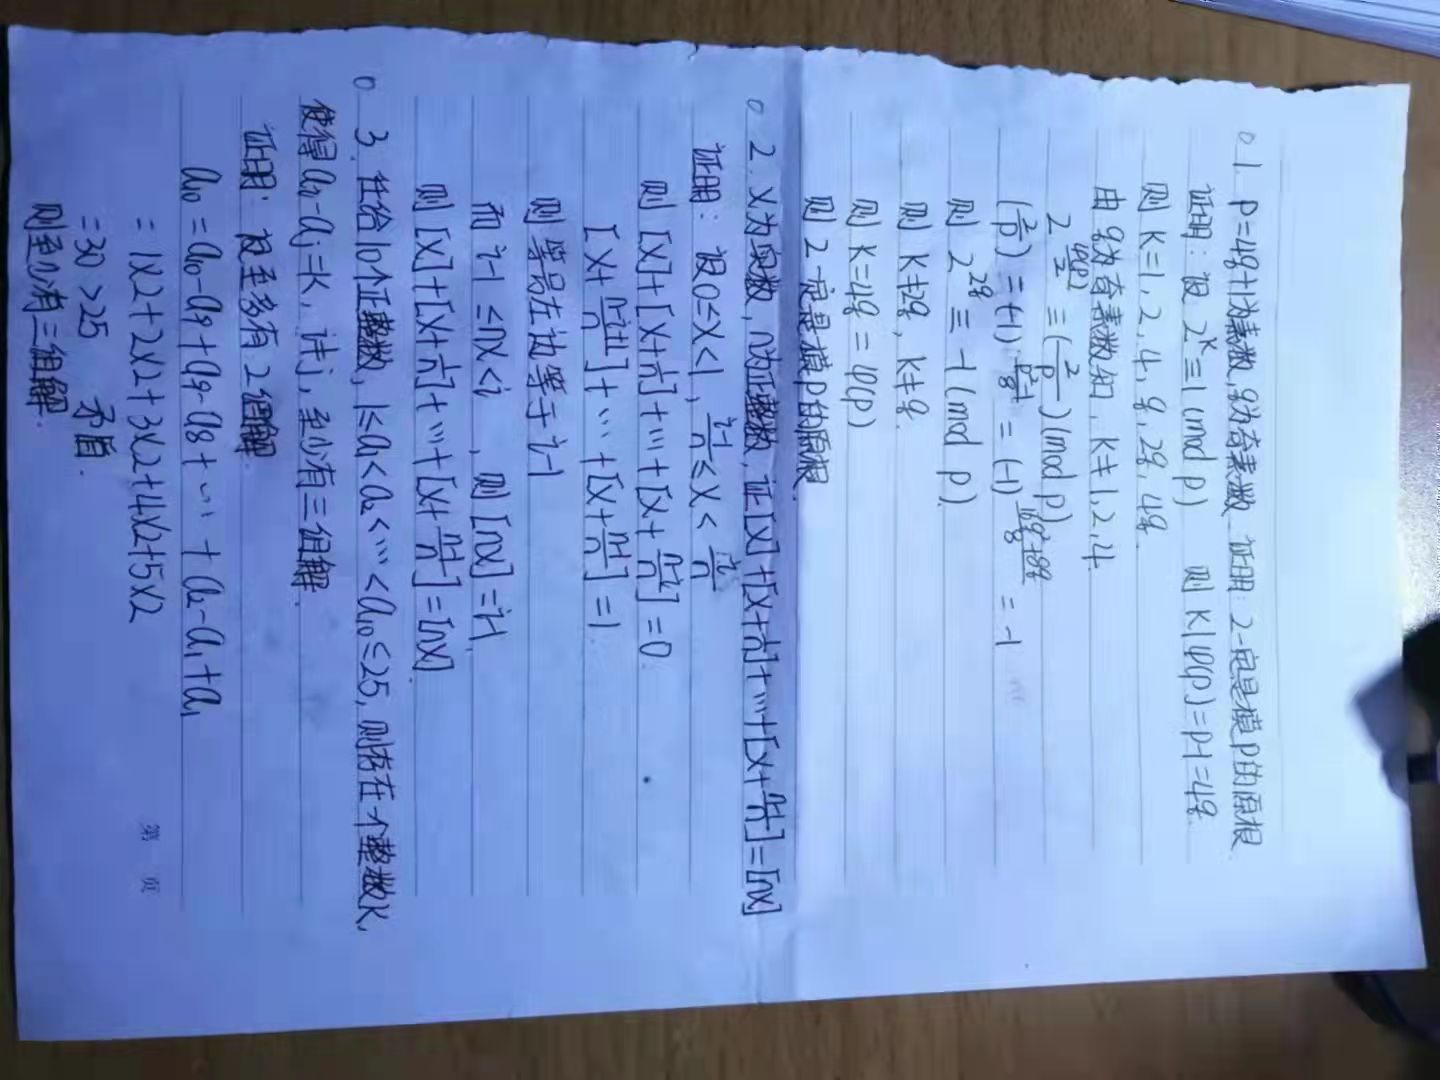 1. p=4q+1为素数,q为奇素数 证明:2一定是模p的原根.
证明:设 2^k≡1(mod p) 则 k|φ(p)=p-1=4q.
则 k=1,2,4,q,2q,4q.
由q为奇素数知,k≠1,2,4.
2^{φ(p)/2}≡(2/p)(mod p)
(2/p)=(-1)^{(p²-1)/8}=(-1)^{(16q²+8q)/8}=-1
则 2^{2q}≡-1(mod p).
则 k≠2q, k≠q.
则 k=4q=φ(p)
则 2一定是模p的原根.
2. X为实数,n为正整数,证[X]+[X+1/n]+…+[X+(n-1)/n]=[nX]
证明:设0≤X<1, (i-1)/n≤X<i/n
则 [X]+[X+1/n]+…+[X+(n-i)/n]=0.
[X+(n-i+1)/n]+…+[X+(n-1)/n]=1.
则 等号左边等于i-1
而 i-1≤nX<i , 则[nX]=i-1.
则 [X]+[X+1/n]+…+[X+(n-1)/n]=[nX]
3. 任给10个正整数, 1≤a₁<a₂<…<a₁₀≤25, 则存在一个整数k,
使得aᵢ-aⱼ=k, 对i,j, 至少有三组解.
证明:设至多有2组解.
a₁₀=a₁₀-a₉+a₉-a₈+…+a₂-a₁+a₁
=1×2+2×2+3×2+4×2+5×2
=30>25 矛盾.
则至少有三组解.
第 页